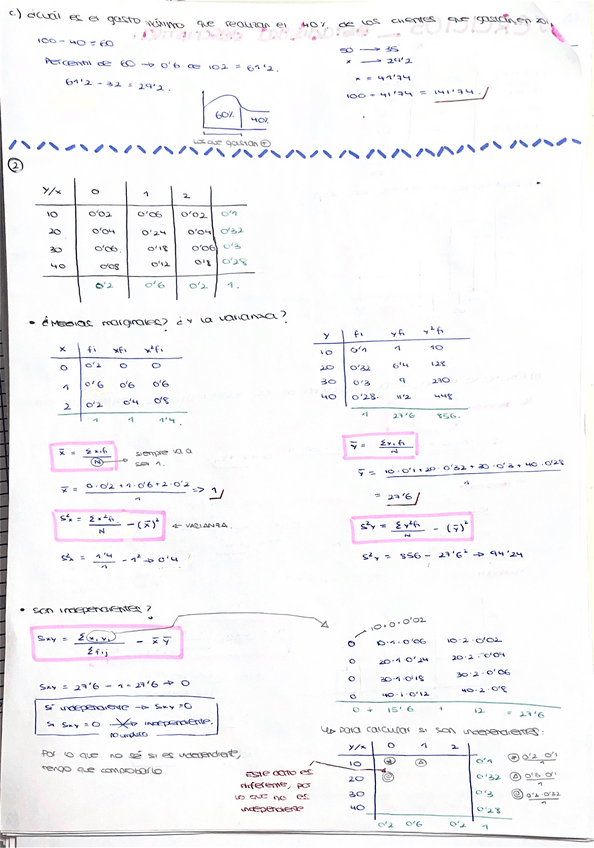 c) ¿Cuál es el gasto mínimo que realizan el 40% de los clientes que gastan en
100 - 40 = 60
Percentil de 60 → 0'6 de 102 = 61'2.
61'2 - 32 = 29'2.
50 → 35
x → 29'2
x = 41'74
100 - 41'74 = 141'74.
60% 40%
los que gastan ⊕
②
Y/X 0 1 2
10 0'02 0'06 0'02 0'1
20 0'04 0'24 0'04 0'32
30 0'06. 0'18 0'06 0'3
40 0'08 0'12 0'8 0'28
0'2 0'6 0'2 1.
• ¿Medias marginales? ¿Y la varianza?
X fi xfi x²fi
0 0'2 0 0
1 0'6 0'6 0'6
2 0'2 0'4 0'8
1 1 1'4.
Y fi yfi y²fi
10 0'1 1 10
20 0'32 6'4 128
30 0'3 9 270
40 0'28. 11'2 448
1 27'6 856.
x̄ = Σxifi / N → siempre va a ser 1.
x̄ = 0·0'2 + 1·0'6 + 2·0'2 / 1 => 1
S²x = Σx²fi / N - (x̄)² ← VARIANZA.
S²x = 1'4 / 1 - 1² → 0'4
ȳ = Σyifi / N
ȳ = 10·0'1 + 20·0'32 + 30·0'3 + 40·0'28 / 1
= 27'6
S²y = Σy²fi / N - (ȳ)²
S²y = 856 - 27'6² → 94'24
• Son independientes?
Sxy = Σxiyi / Σfij - x̄ ȳ
Sxy = 27'6 - 1 · 27'6 → 0
Si independiente → Sxy = 0
Si Sxy = 0 → independiente.
no implica
Por lo que no sé si es independiente,
tengo que comprobarlo
10·0·0'02
0 10·1·0'06 10·2·0'02
0 20·1·0'24 20·2·0'04
0 30·1·0'18 30·2·0'06
0 40·1·0'12 40·2·0'8
0 + 15'6 + 12 = 27'6
↳ Para calcular si son independientes:
Y/X 0 1 2
10 0'1
20 0'32
30 0'3
40 0'28
0'2 0'6 0'2 1
0'2·0'1 / 1
0'6·0'1 / 1
0'2·0'32 / 1
Este dato es
diferente, por
lo que no es
independiente